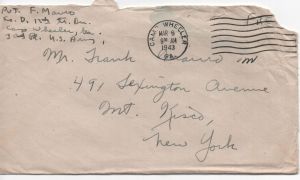 Pvt. F. Mauro
Co. D. 13th
Camp Wheeler, Ga.
U.S. Army
CAMP WHEELER
MAR 9
AM
1943
GA.
Mr. Frank Mauro
491 Lexington Avenue
Mt. Kisco,
New York